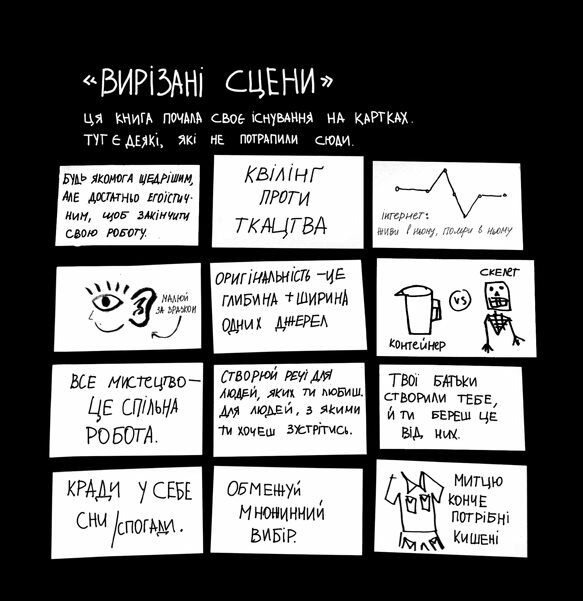 «ВИРІЗАНІ СЦЕНИ»
ЦЯ КНИГА ПОЧАЛА СВОЄ ІСНУВАННЯ НА КАРТКАХ.
ТУТ Є ДЕЯКІ, ЯКІ НЕ ПОТРАПИЛИ СЮДИ.
БУДЬ ЯКОМОГА ЩЕДРІШИМ,
АЛЕ ДОСТАТНЬО ЕГОЇСТИЧ-
НИМ, ЩОБ ЗАКІНЧИТИ
СВОЮ РОБОТУ.
КВІЛІНГ
ПРОТИ
ТКАЦТВА
Інтернет:
живи в ньому, помри в ньому
МАЛЮЙ
ЗА ЗРАЗКОМ
ОРИГІНАЛЬНІСТЬ – ЦЕ
ГЛИБИНА + ШИРИНА
ОДНИХ ДЖЕРЕЛ
СКЕЛЕТ
VS
КОНТЕЙНЕР
ВСЕ МИСТЕЦТВО –
ЦЕ СПІЛЬНА
РОБОТА.
СТВОРЮЙ РЕЧІ ДЛЯ
ЛЮДЕЙ, ЯКИХ ТИ ЛЮБИШ.
ДЛЯ ЛЮДЕЙ, З ЯКИМИ
ТИ ХОЧЕШ ЗУСТРІТИСЬ.
ТВОЇ БАТЬКИ
СТВОРИЛИ ТЕБЕ,
Й ТИ БЕРЕШ ЦЕ
ВІД НИХ.
КРАДИ У СЕБЕ
СНИ/СПОГАДИ.
ОБМЕЖУЙ
МНОЖИННИЙ
ВИБІР.
МИТЦЮ
КОНЧЕ
ПОТРІБНІ
КИШЕНІ